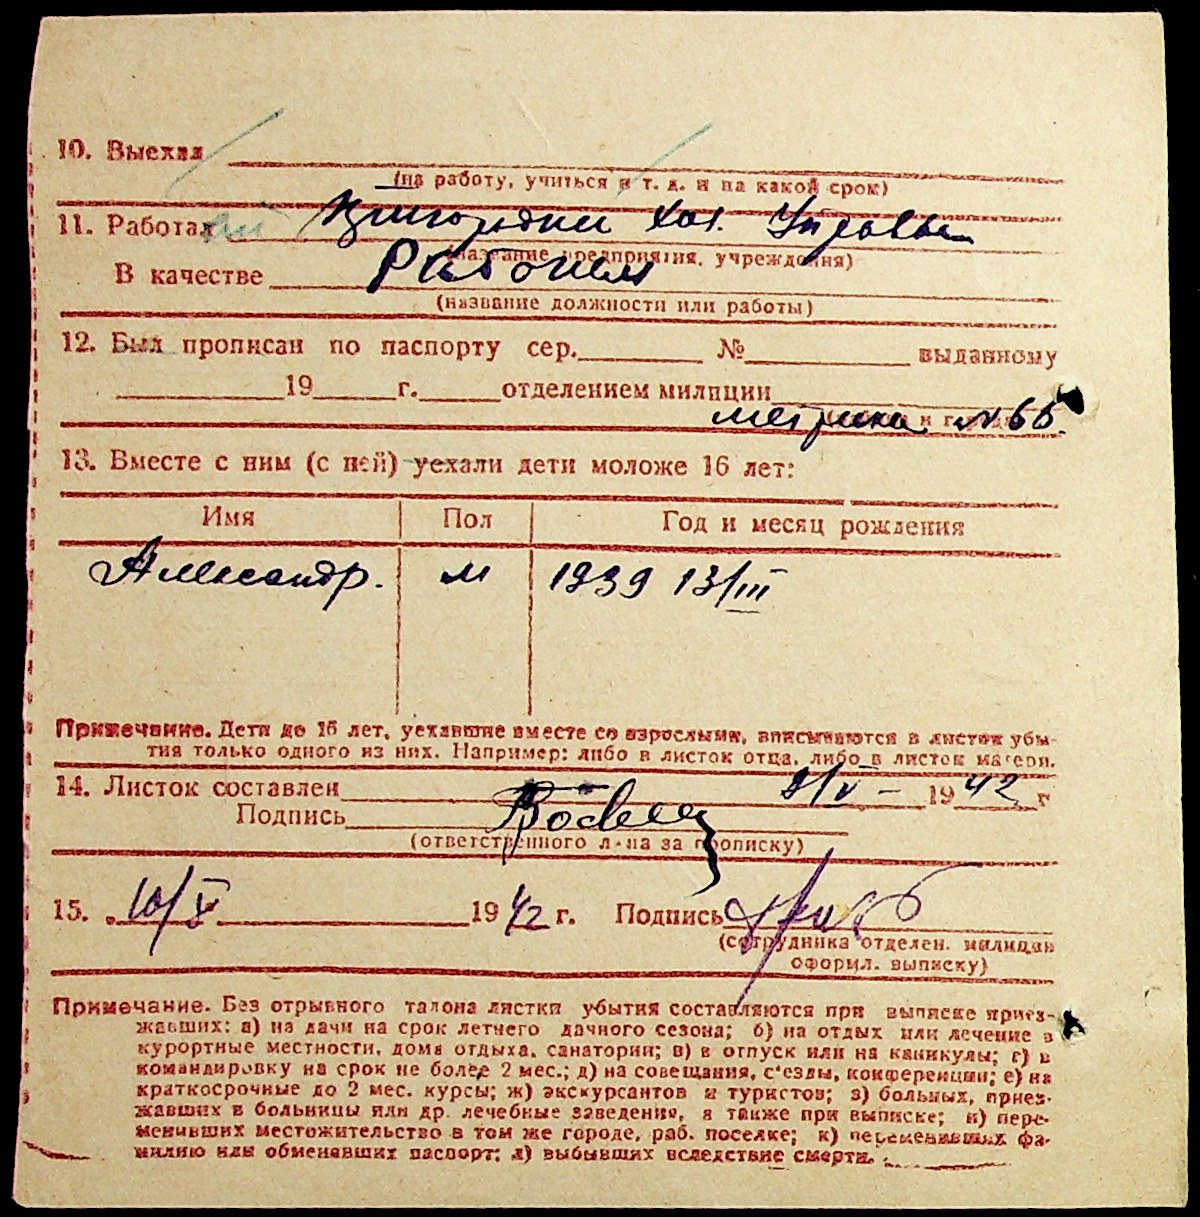 10. Выехал
(на работу, учиться и т. д. и на какой срок)
11. Работал Пригородн Хоз. Управлен
(название предприятия, учреждения)
В качестве Рабочем
(название должности или работы)
12. Был прописан по паспорту сер. № выданному
19 г. отделением милиции
метрика №66.
13. Вместе с ним (с ней) уехали дети моложе 16 лет:
Имя Пол Год и месяц рождения
Александр. м 1939 13/III
Примечание. Дети до 16 лет, уехавшие вместе со взрослыми, вписываются в листок убы-
тия только одного из них. Например: либо в листок отца, либо в листок матери.
14. Листок составлен 9/V - 1942 г
Подпись
(ответственного л-на за прописку)
15. 10/V 1942 г. Подпись
(сотрудника отделен. милиции
оформл. выписку)
Примечание. Без отрывного талона листки убытия составляются при выписке приез-
жавших: а) на дачи на срок летнего дачного сезона; б) на отдых или лечение в
курортные местности, дома отдыха, санатории; в) в отпуск или на каникулы; г) в
командировку на срок не более 2 мес.; д) на совещания, с'езды, конференции; е) на
краткосрочные до 2 мес. курсы; ж) экскурсантов и туристов; з) больных, приез-
жавших в больницы или др. лечебные заведения, а также при выписке; и) пере-
менивших местожительство в том же городе, раб. поселке; к) переменивших фа-
милию или обменявших паспорт; л) выбывших вследствие смерти.